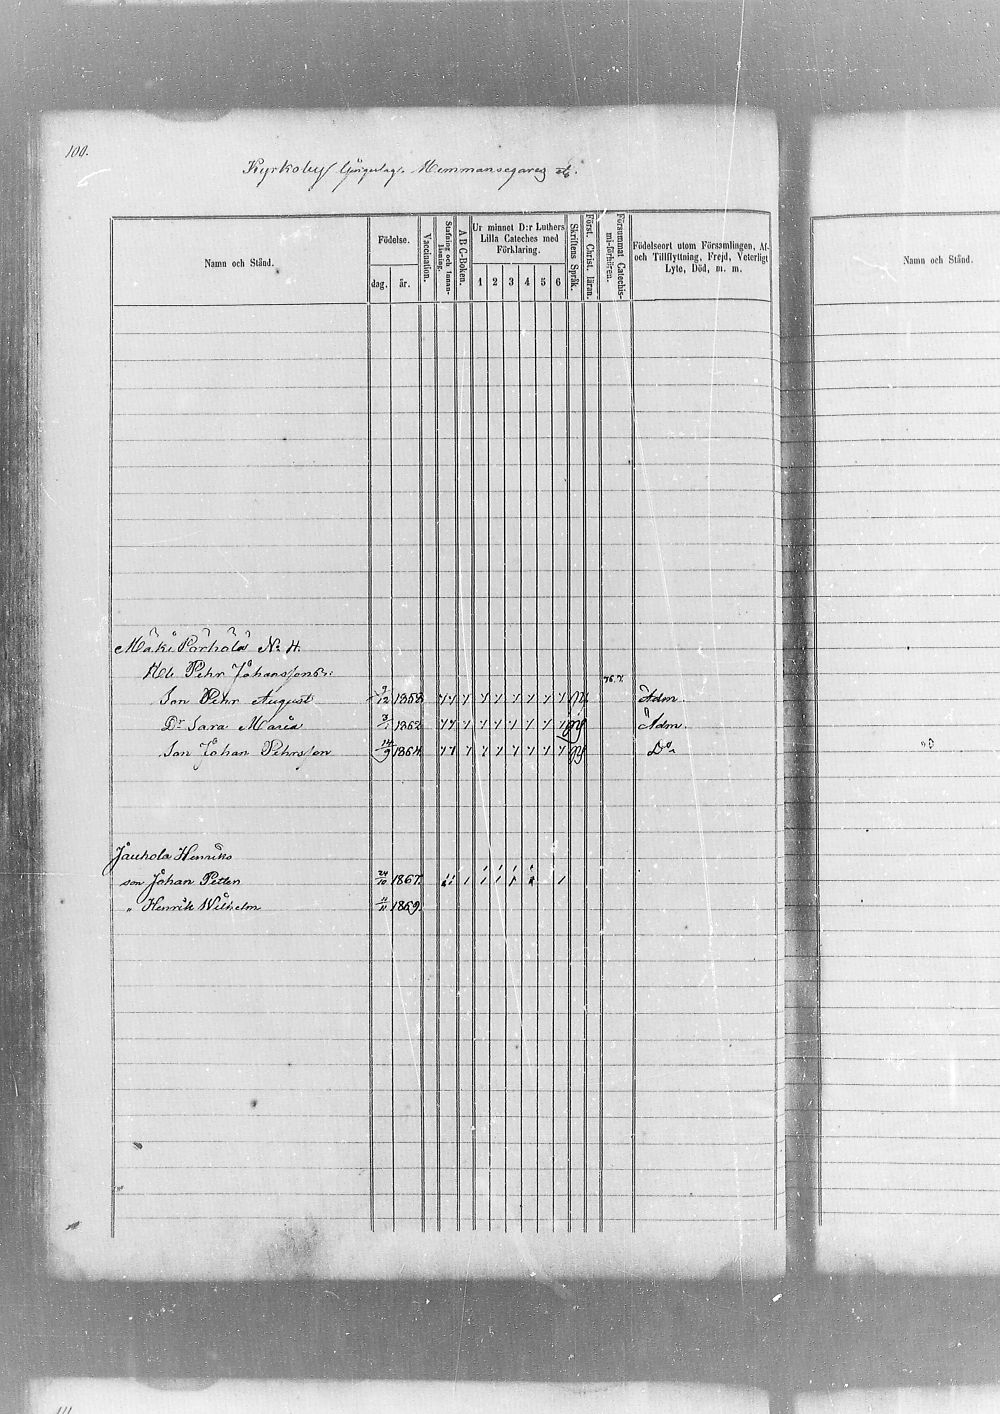 100.
Kyrkoby Hemmansegares
Namn och Stånd.
Födelse.
dag. år.
Vaccination.
Stafning och Innanläsning.
A B C-Boken.
Ur minnet D:r Luthers Lilla Cateches med Förklaring.
1 2 3 4 5 6
Skriftens Språk.
Först. Christ. läran.
Försummat Catechismi-förhören.
Födelseort utom Församlingen, Af- och Tillflyttning, Frejd, Veterligt Lyte, Död, m. m.
Namn och Stånd.
Mäki Pörhölä No 4.
Pehr Johanssons
76.7.
Son Pehr August 9/12 1858 Adm.
Dr Sara Maria 1862 Adm.
Son Johan Pehrsson 14/9 1864 Do
Jauhola Henriks
son Johan Petter 24/10 1867.
„ Henrik Wilhelm 11/11 1869.